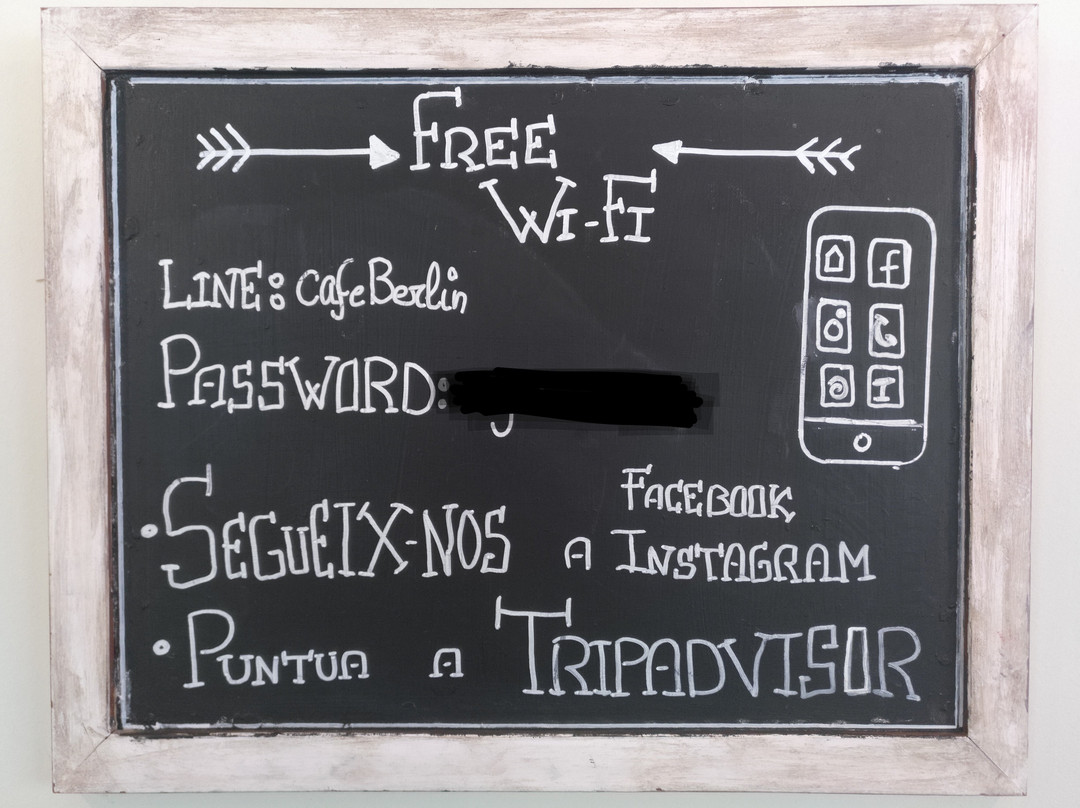 FREE
WI-FI
LINE: cafeBerlin
PASSWORD:
• SEGUEIX-NOS a FACEBOOK
INSTAGRAM
• PUNTUA a TRIPADVISOR